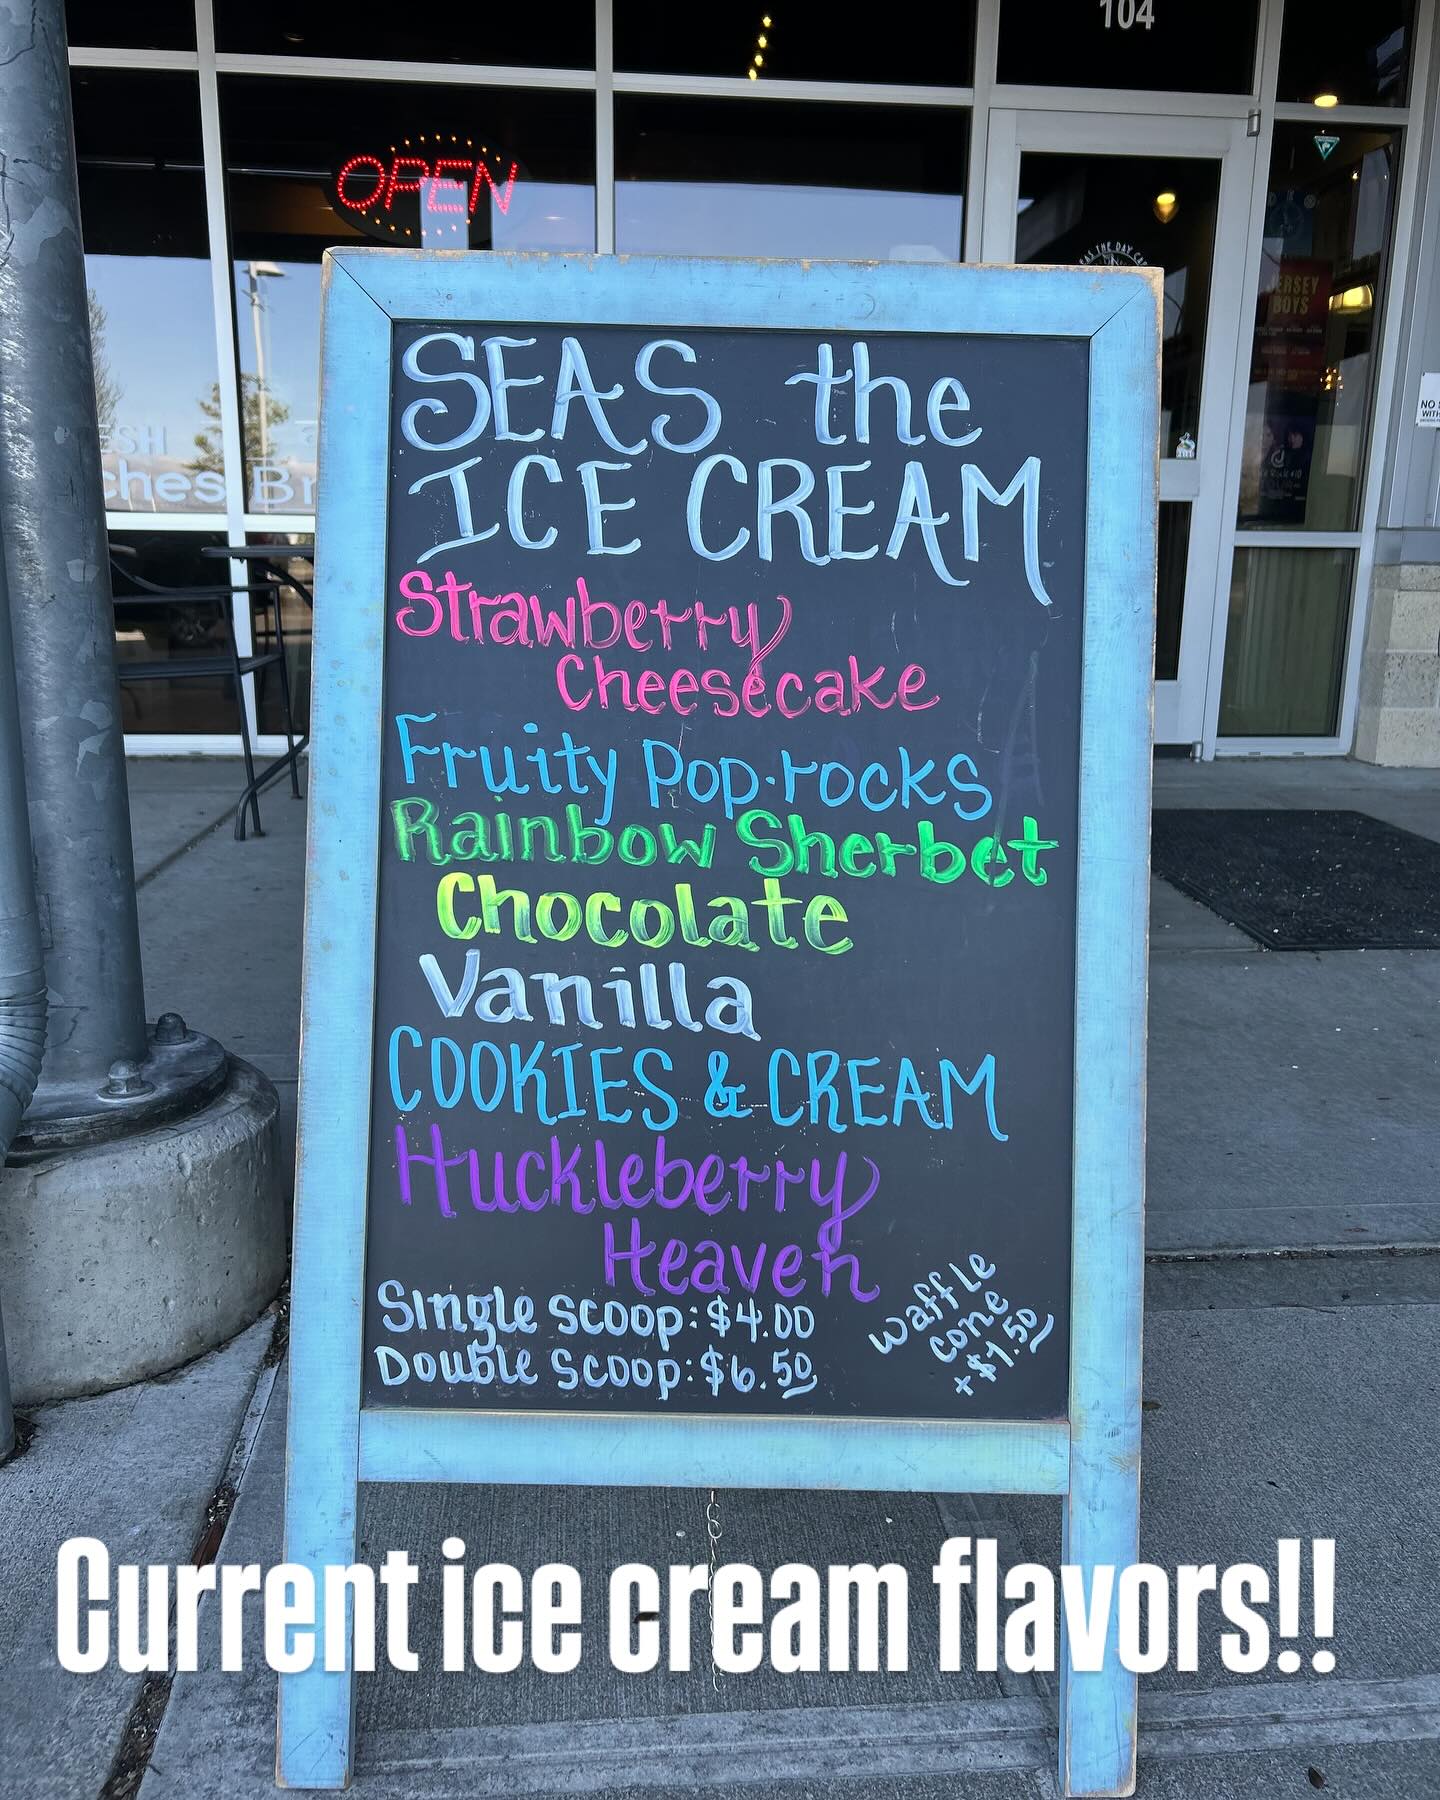 104
OPEN
SEAS THE DAY
JERSEY
BOYS
NO
SEAS the
ICE CREAM
Strawberry
Cheesecake
Fruity Pop·rocks
Rainbow Sherbet
Chocolate
Vanilla
COOKIES & CREAM
Huckleberry
Heaven
Single scoop: $4.00
Double scoop: $6.50
waffle
cone
+$1.50
Current ice cream flavors!!